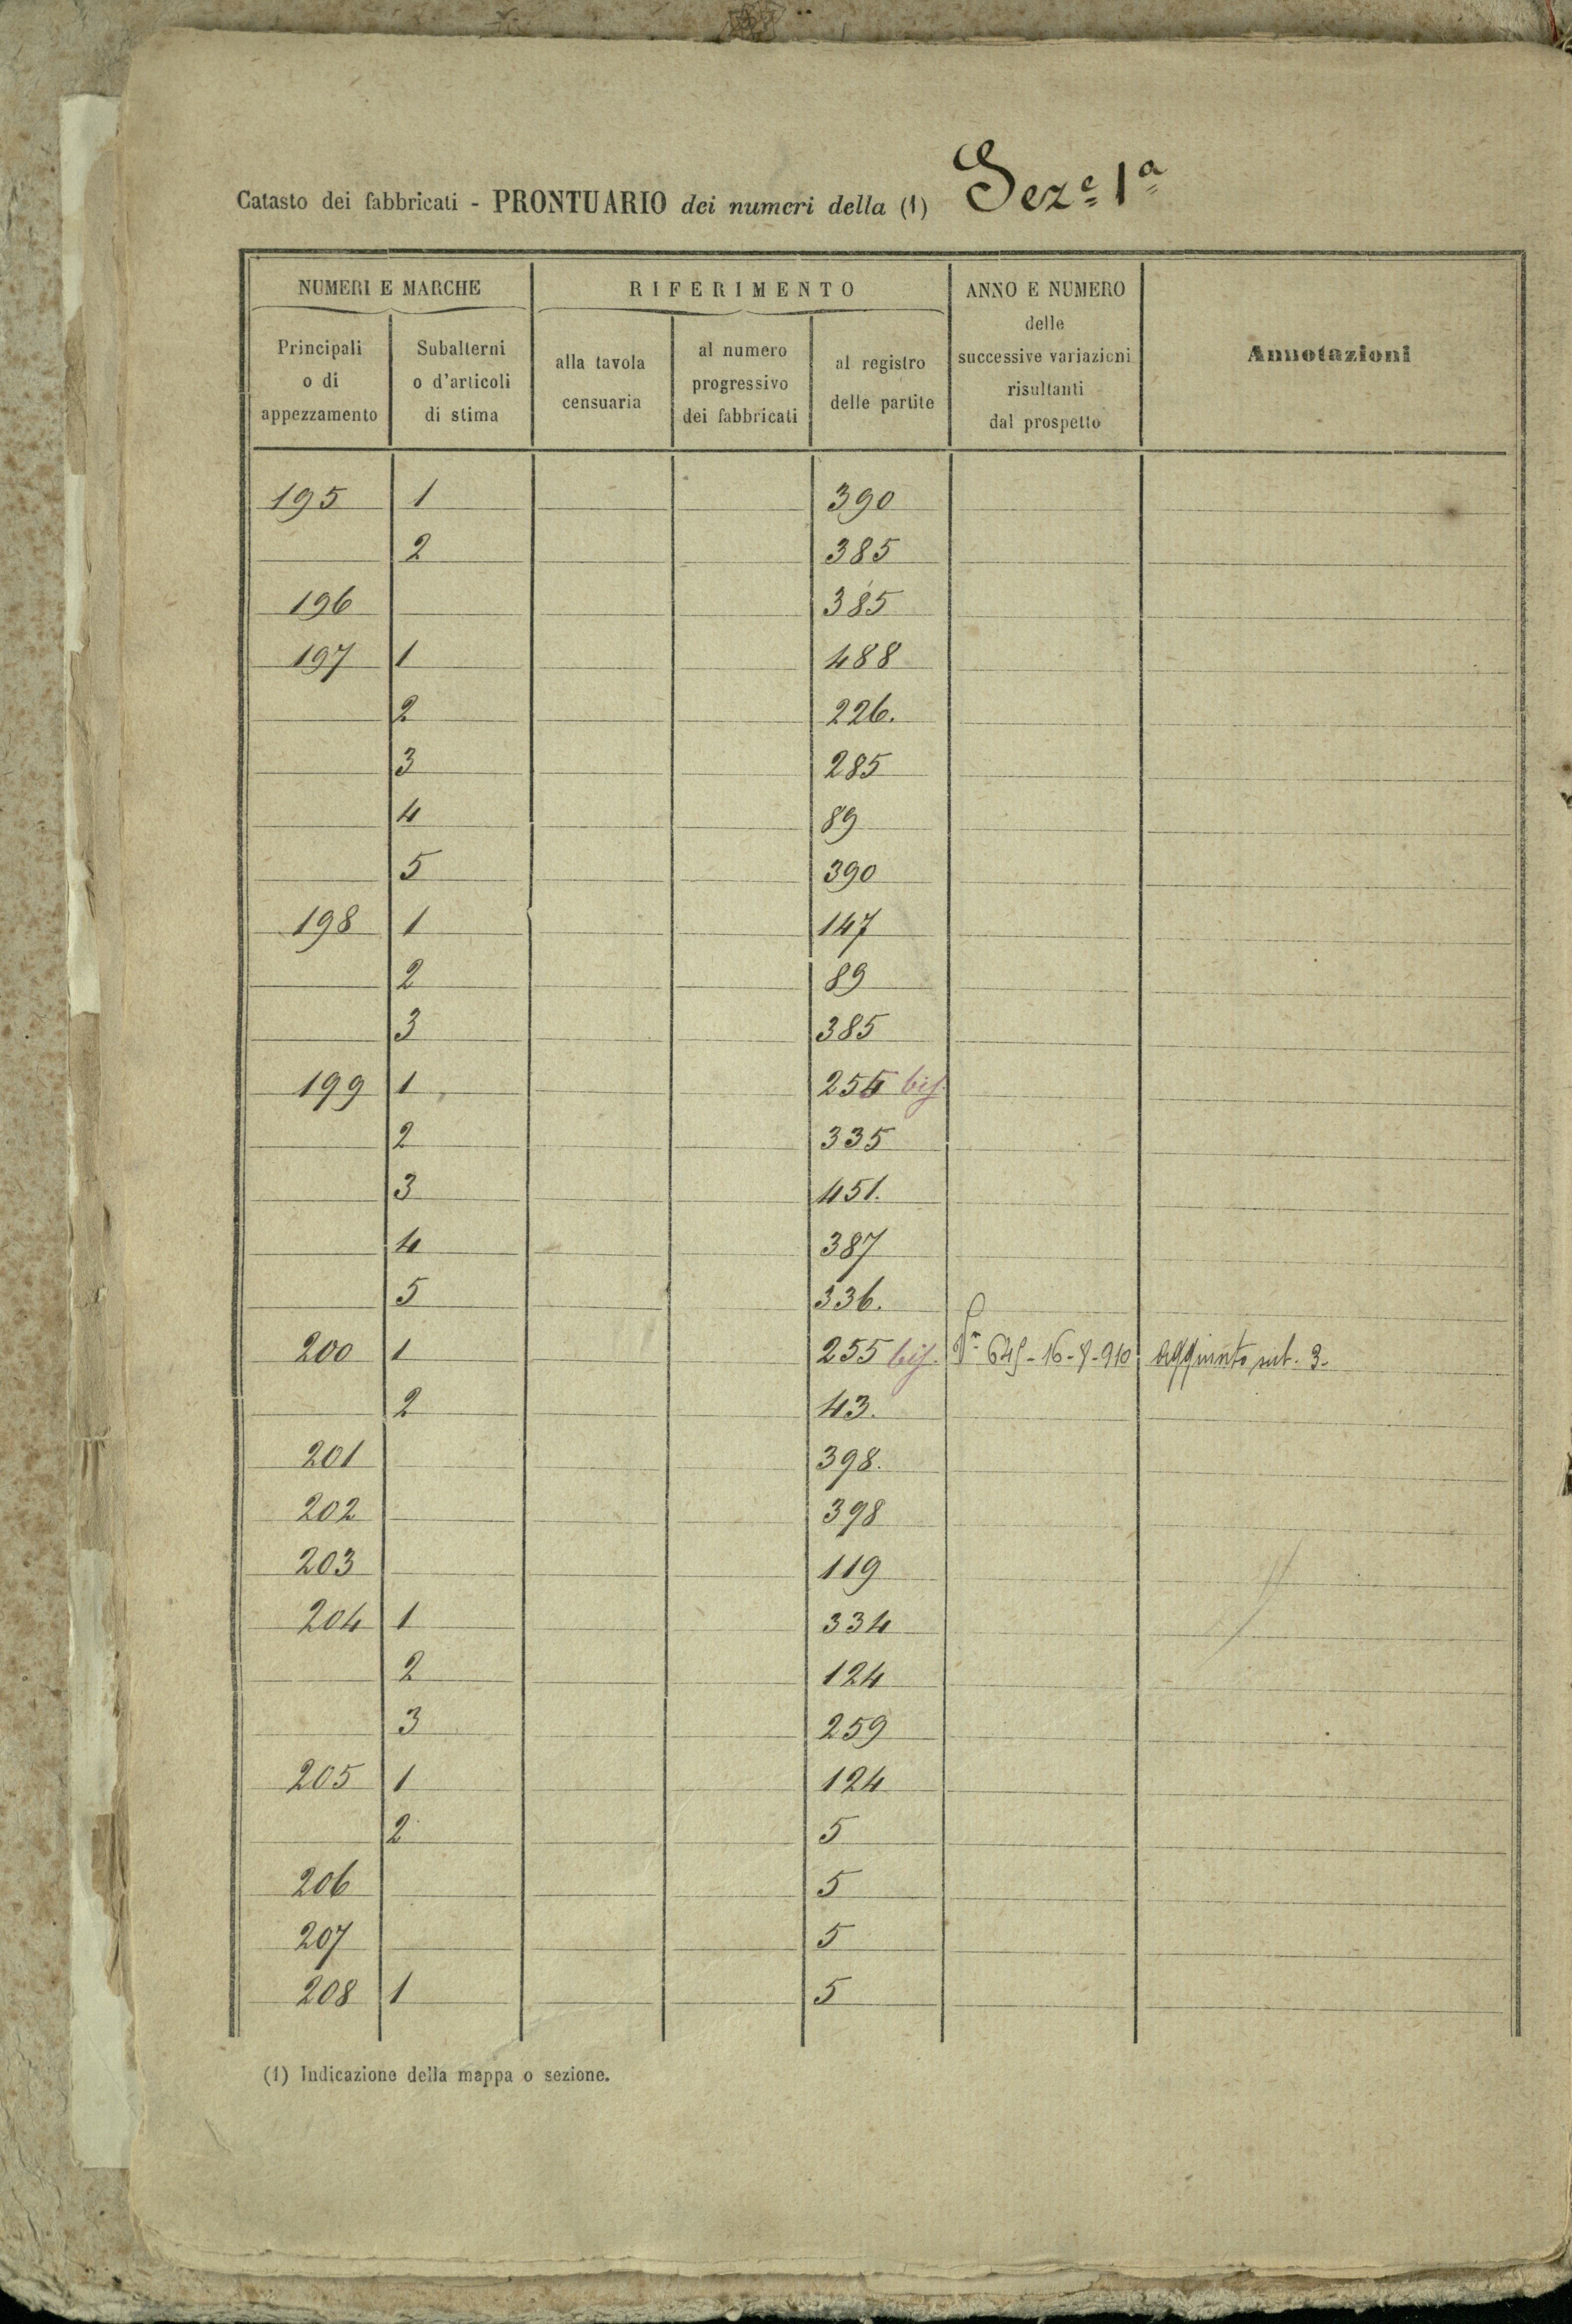 Catasto dei fabbricati - PRONTUARIO dei numeri della (1) Sez.e 1a
NUMERI E MARCHE
RIFERIMENTO
ANNO E NUMERO
delle
successive variazioni
risultanti
dal prospetto
Annotazioni
Principali
o di
appezzamento
Subalterni
o d'articoli
di stima
alla tavola
censuaria
al numero
progressivo
dei fabbricati
al registro
delle partite
195 1 390
2 385
196 385
197 1 488
2 226.
3 285
4 89
5 390
198 1 147
2 89
3 385
199 1 255 bis.
2 335
3 451.
4 387
5 336.
200 1 255 bis. aggiunto sub. 3.
2 43.
201 398.
202 398
203 119
204 1 334
2 124
3 259
205 1 124
2 5
206 5
207 5
208 1 5
(1) Indicazione della mappa o sezione.